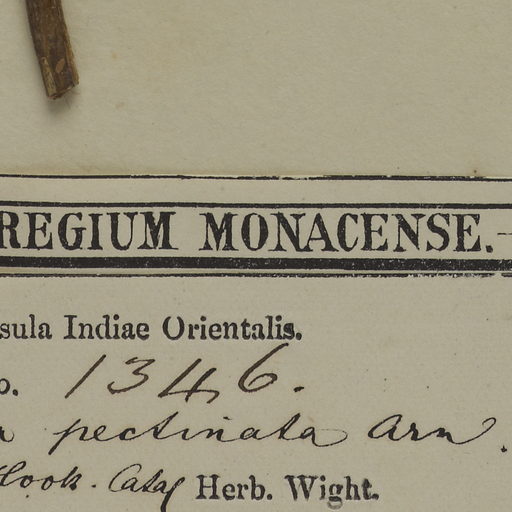 REGIUM MONACENSE.
sula Indiae Orientalis.
o. 1346.
pectinata Arn.
Hook. Catal Herb. Wight.